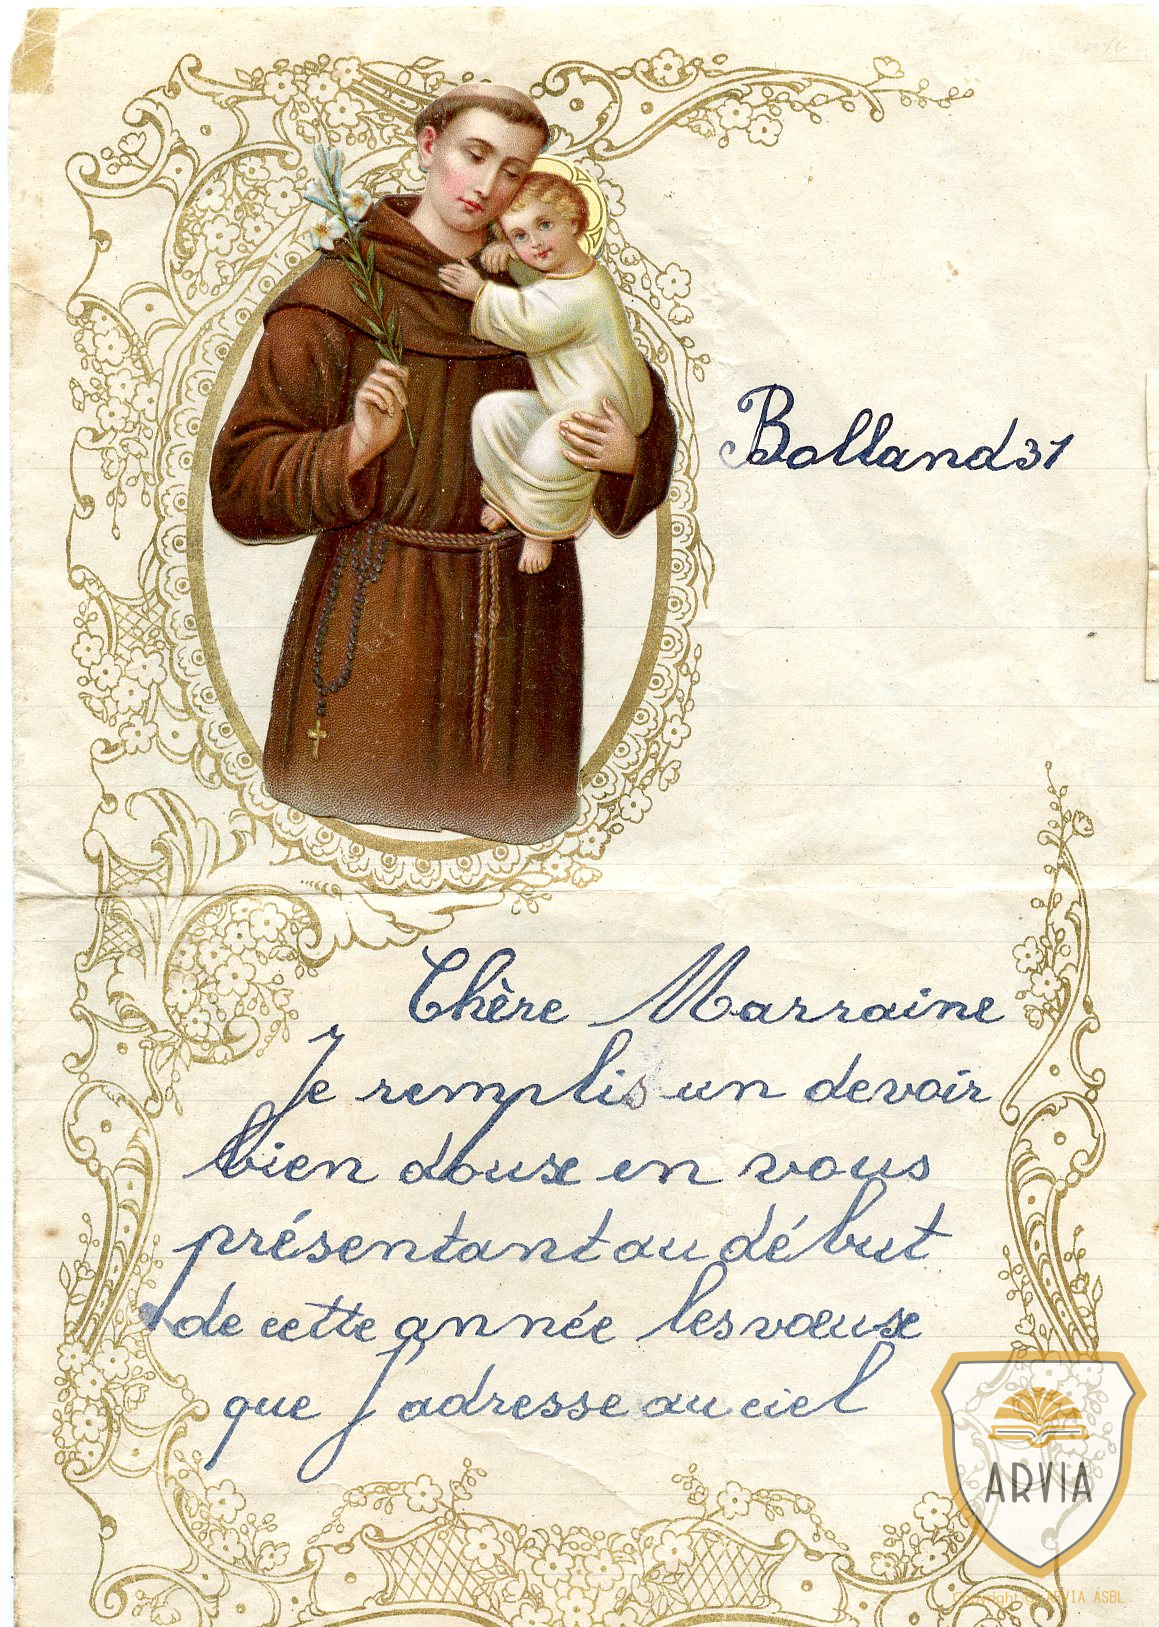 Bolland 31
Chère Marraine
Je remplis un devoir
bien doux en vous
présentant au début
de cette année les vœux
que j'adresse au ciel
ARVIA
ARVIA ASBL